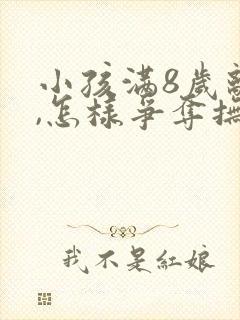 小孩满8岁
,怎样争夺
我不是红娘